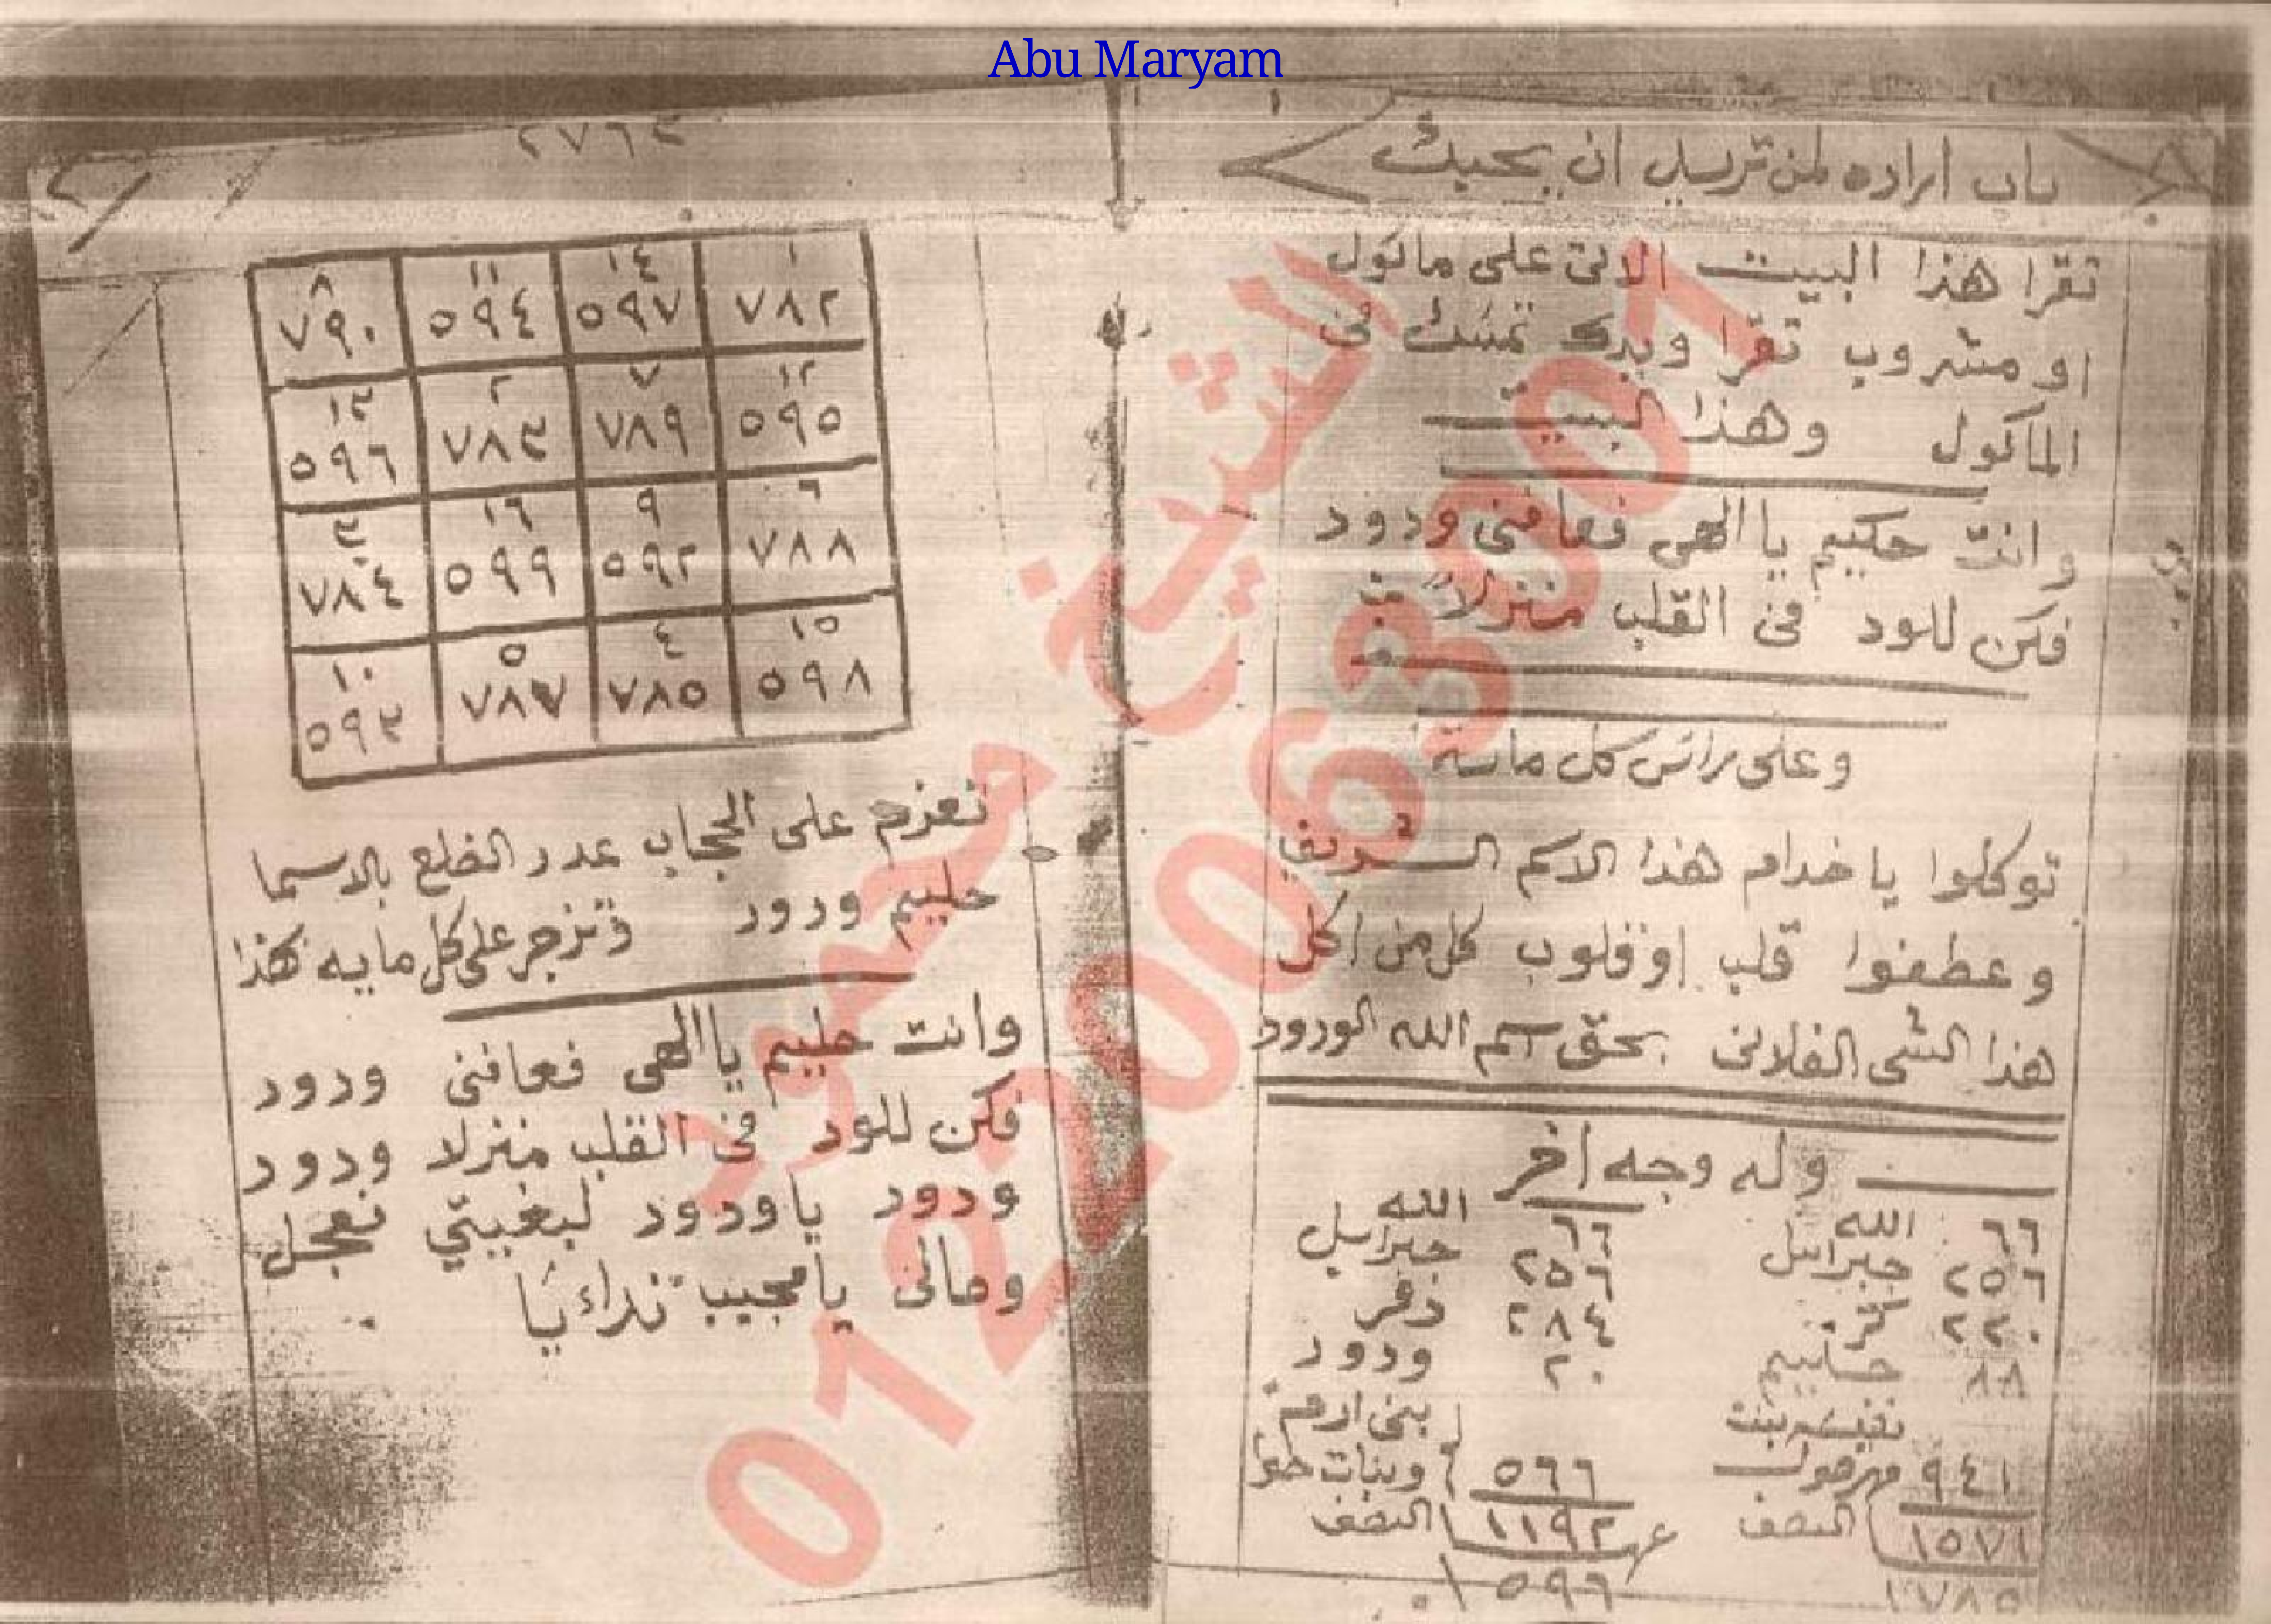 Abu Maryam
باب اراده لمن تريد ان يحبك
تقرا هذا البيت الاتى على ماكول
او مشروب تقرا ويدك تمسك فى
الماكول وهذا البيت
وانت حكيم يا الهى فعافنى ودود
فكن للود فى القلب منزلاً
وعلى راس كل مائة
توكلوا يا خدام هذا الاسم الشريف
وعطفوا قلب او قلوب كل من اكل
هذا الشى الفلانى بحق اسم الله الودود
وله وجه اخر
٦٦ الله ٦٦ الله
٢٥٦ جبرائيل ٢٥٦ جبرائيل
٢٢٠ ٢٨٤
٨٨ حليم ٢٠ ودود
نفيسه بنت بنى ادم
٩٤١ ٥٦٦ وبنات حوا
١٥٧١ النصف ١١٩٢ النصف
١٧٨٥ ٥٩٦
٢٧٦٢
١ ١٤ ١١ ٨
٧٨٢ ٥٩٧ ٥٩٤ ٧٩٠
١٢ ٧ ٢ ١٣
٥٩٥ ٧٨٩ ٧٨٣ ٥٩٦
٦ ٩ ١٦ ٣
٧٨٨ ٥٩٢ ٥٩٩ ٧٨٤
١٥ ٤ ٥ ١٠
٥٩٨ ٧٨٥ ٧٨٧ ٥٩٣
تعزم على الحجاب عدد الضلع بالاسما
حليم ودود وتزجر على كل مايه هكذا
وانت حليم يا الهى فعافنى ودود
فكن للود فى القلب منزلا ودود
ودود يا ودود لبغيتي فعجل
وحالى يا مجيب ندائيا
الشيخ
01220063001